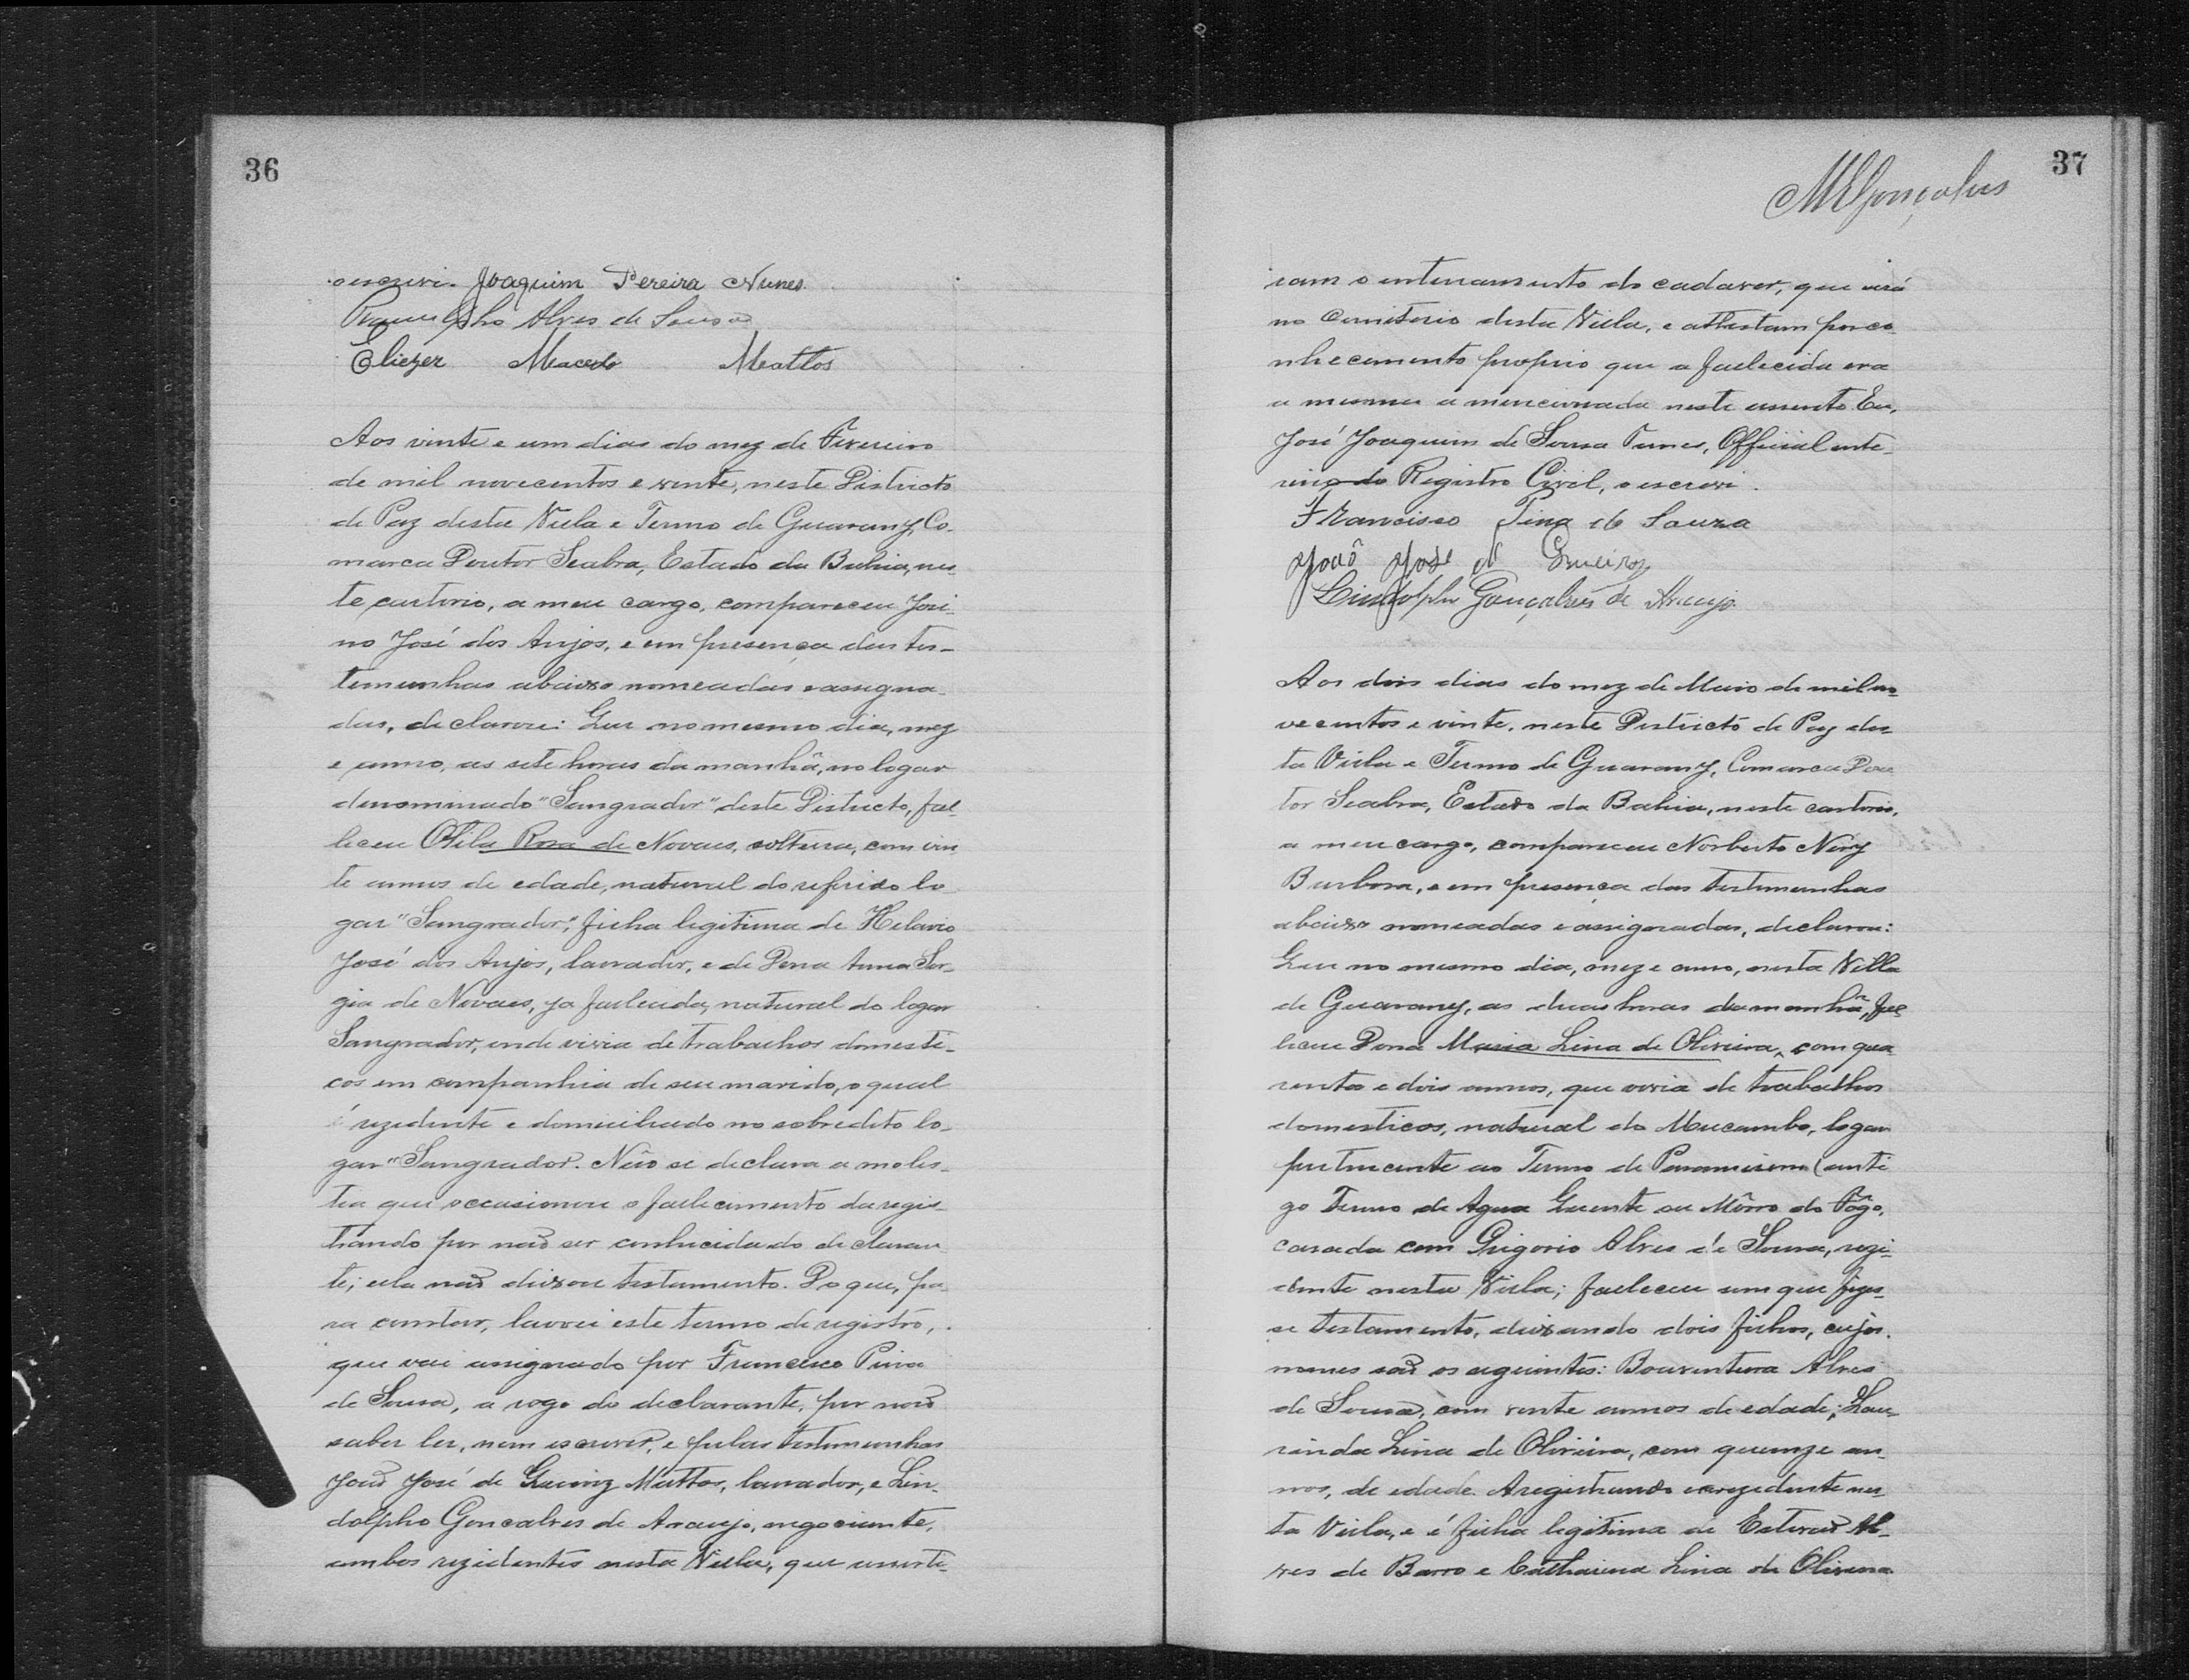 36
o escrevi. Joaquim Pereira Nunes.
Alves de Sousa
Eliezer Macedo Mattos
Aos vinte e um dias do mez de Fevereiro
de mil novecentos e vinte, neste Districto
de Paz desta Villa e Termo de Guarany, Co-
marca Doutor Seabra, Estado da Bahia, nes-
te cartorio, a meu cargo, compareceu Josi-
no José dos Anjos, e em presença das tes-
temunhas abaixo nomeadas e assigna-
das, declarou: Que no mesmo dia, mez
e anno, as sete horas da manhã, no logar
denominado "Sangrador" deste Districto, fal-
leceu Otila Rosa de Novaes, solteira, com vin-
te annos de edade, natural do referido lo-
gar "Sangrador", filha legitima de Hilario
José dos Anjos, lavrador, e de Dona Anna Ser-
gia de Novaes, ja fallecida, natural do logar
Sangrador, onde vivia de trabalhos domesti-
cos em companhia de seu marido, o qual
é rezidente e domiciliado no sobredito lo-
gar "Sangrador. Não se declara a moles-
tia que occasionou o fallecimento da regis-
trando por não ser conhecida do declaran-
te; ella não deixou testamento. Do que, pa-
ra constar, lavrei este termo de registro,
que vai assignado por Francisco Pina
de Sousa, a rogo do declarante, por não
saber ler, nem escrever, e pelas testemunhas
João José de Queiroz Mattos, lavrador, e Lin-
dolpho Goncalves de Araujo, negociante,
ambos rezidentes nesta Villa, que assisti-
37
MEGonçalves
ram o enterramento do cadaver, que irá
no Cemiterio desta Villa, e attestam por co-
nhecimento proprio que a fallecida era
a mesma a mencionada neste assento. Eu,
José Joaquim de Sousa Nunes, Official inte-
rino do Registro Civil, o escrevi.
Francisco Pina de Souza
João José de Queiroz
Lindolpho Gonçalves de Araujo
Aos dois dias do mez de Maio de mil no-
vecentos e vinte, neste Districto de Paz des-
ta Villa e Termo de Guarany, Comarca Dou-
tor Seabra, Estado da Bahia, neste cartorio,
a meu cargo, compareceu Norberto Nery
Barbosa, e em presença das testemunhas
abaixo nomeadas e assignadas, declarou:
Que no mesmo dia, mez e anno, nesta Villa
de Guarany, as duas horas da manhã, fal-
leceu Dona Maria Lina de Oliveira, com qua-
renta e dois annos, que vivia de trabalhos
domesticos, natural do Mucambo, logar
pertencente ao Termo de Paramirim (anti-
go Termo de Agua Quente ou Môrro do Fôgo,
casada com Grigorio Alves de Sousa, rezi-
dente nesta Villa; falleceu sem que fizes-
se testamento, deixando dois filhos, cujos
nomes são os seguintes: Boaventura Alves
de Sousa, com vinte annos de edade; Lau-
rinda Lina de Oliveira, com quinze an-
nos, de edade. A registrando era rezidente nes-
ta Villa, e é filha legitima de Estevão Al-
ves de Barro e Catharina Lina de Oliveira